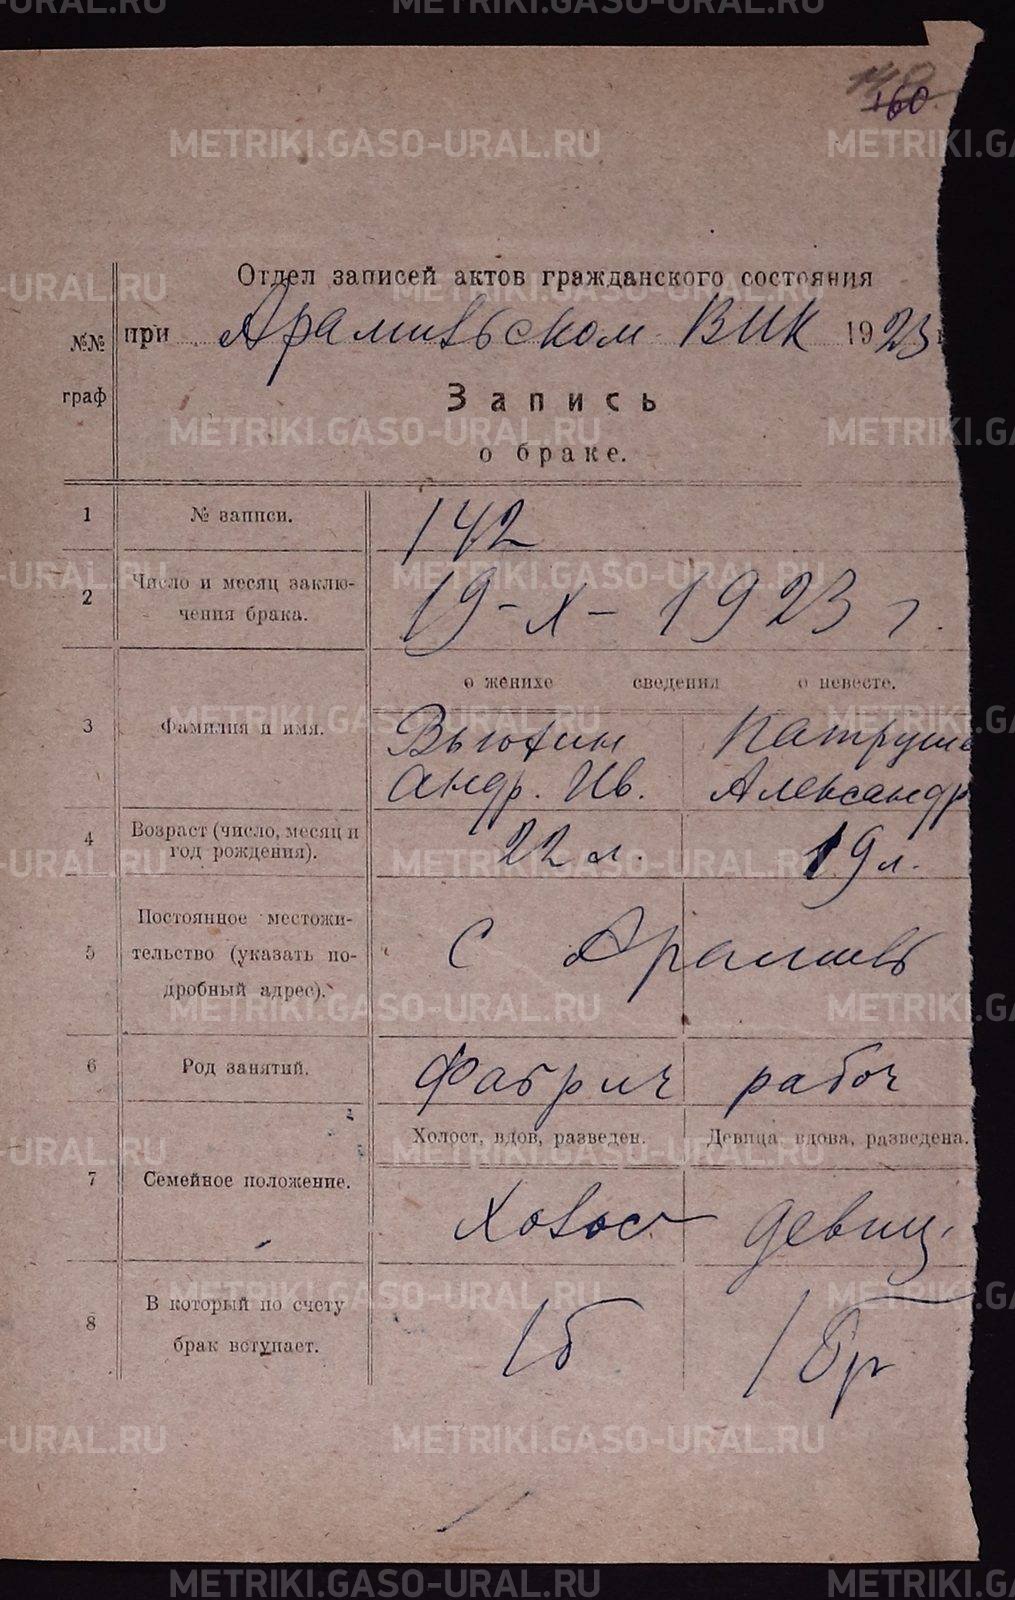 160
Отдел записей актов гражданского состояния
при Арамильском ВИК 1923
№№
граф
Запись
о браке.
1 № записи. 142
2 Число и месяц заклю-
чения брака. 19-X-1923 г.
о женихе сведения о невесте.
3 Фамилия и имя. Вьюхин Патруше
Андр. Ив. Александр
4 Возраст (число, месяц и
год рождения). 22 л. 19 л.
5 Постоянное местожи-
тельство (указать по-
дробный адрес). С Арамиль
6 Род занятий. Фабрич рабоч
Холост, вдов, разведен. Девица, вдова, разведена.
7 Семейное положение. Холост девиц.
8 В который по счету
брак вступает. 1б 1 бр
METRIKI.GASO-URAL.RU